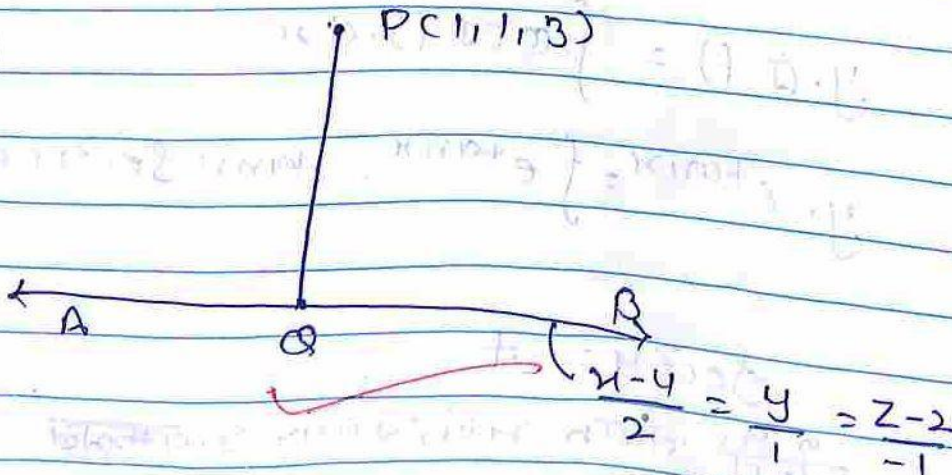 P(1,1,3)
A
Q
B
x-4/2 = y/1 = z-2/-1